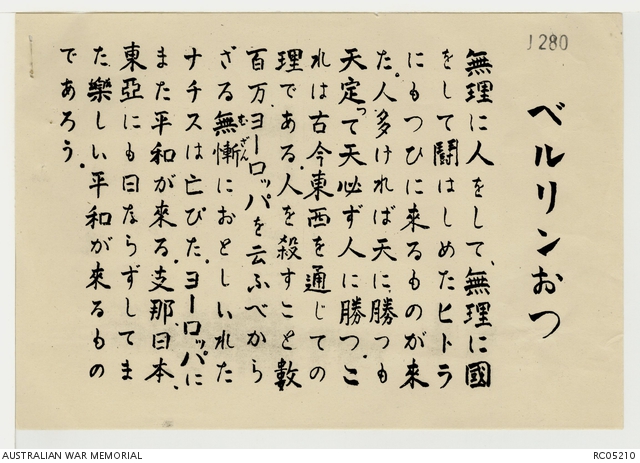 J280
ベルリンおつ
無理に人をして、無理に國
をして闘はしめたヒトラ
にもつひに来るものが来
た。人多ければ天に勝つも
天定って天必ず人に勝つ。こ
れは古今東西を通じての
理である。人を殺すこと数
百万、ヨーロッパを云ふべから
ざる無慚むざんにおとしいれた
ナチスは亡びた。ヨーロッパに
また平和が来る。支那、日本、
東亞にも日ならずしてま
た樂しい平和が来るもの
であろう。
AUSTRALIAN WAR MEMORIAL
RC05210